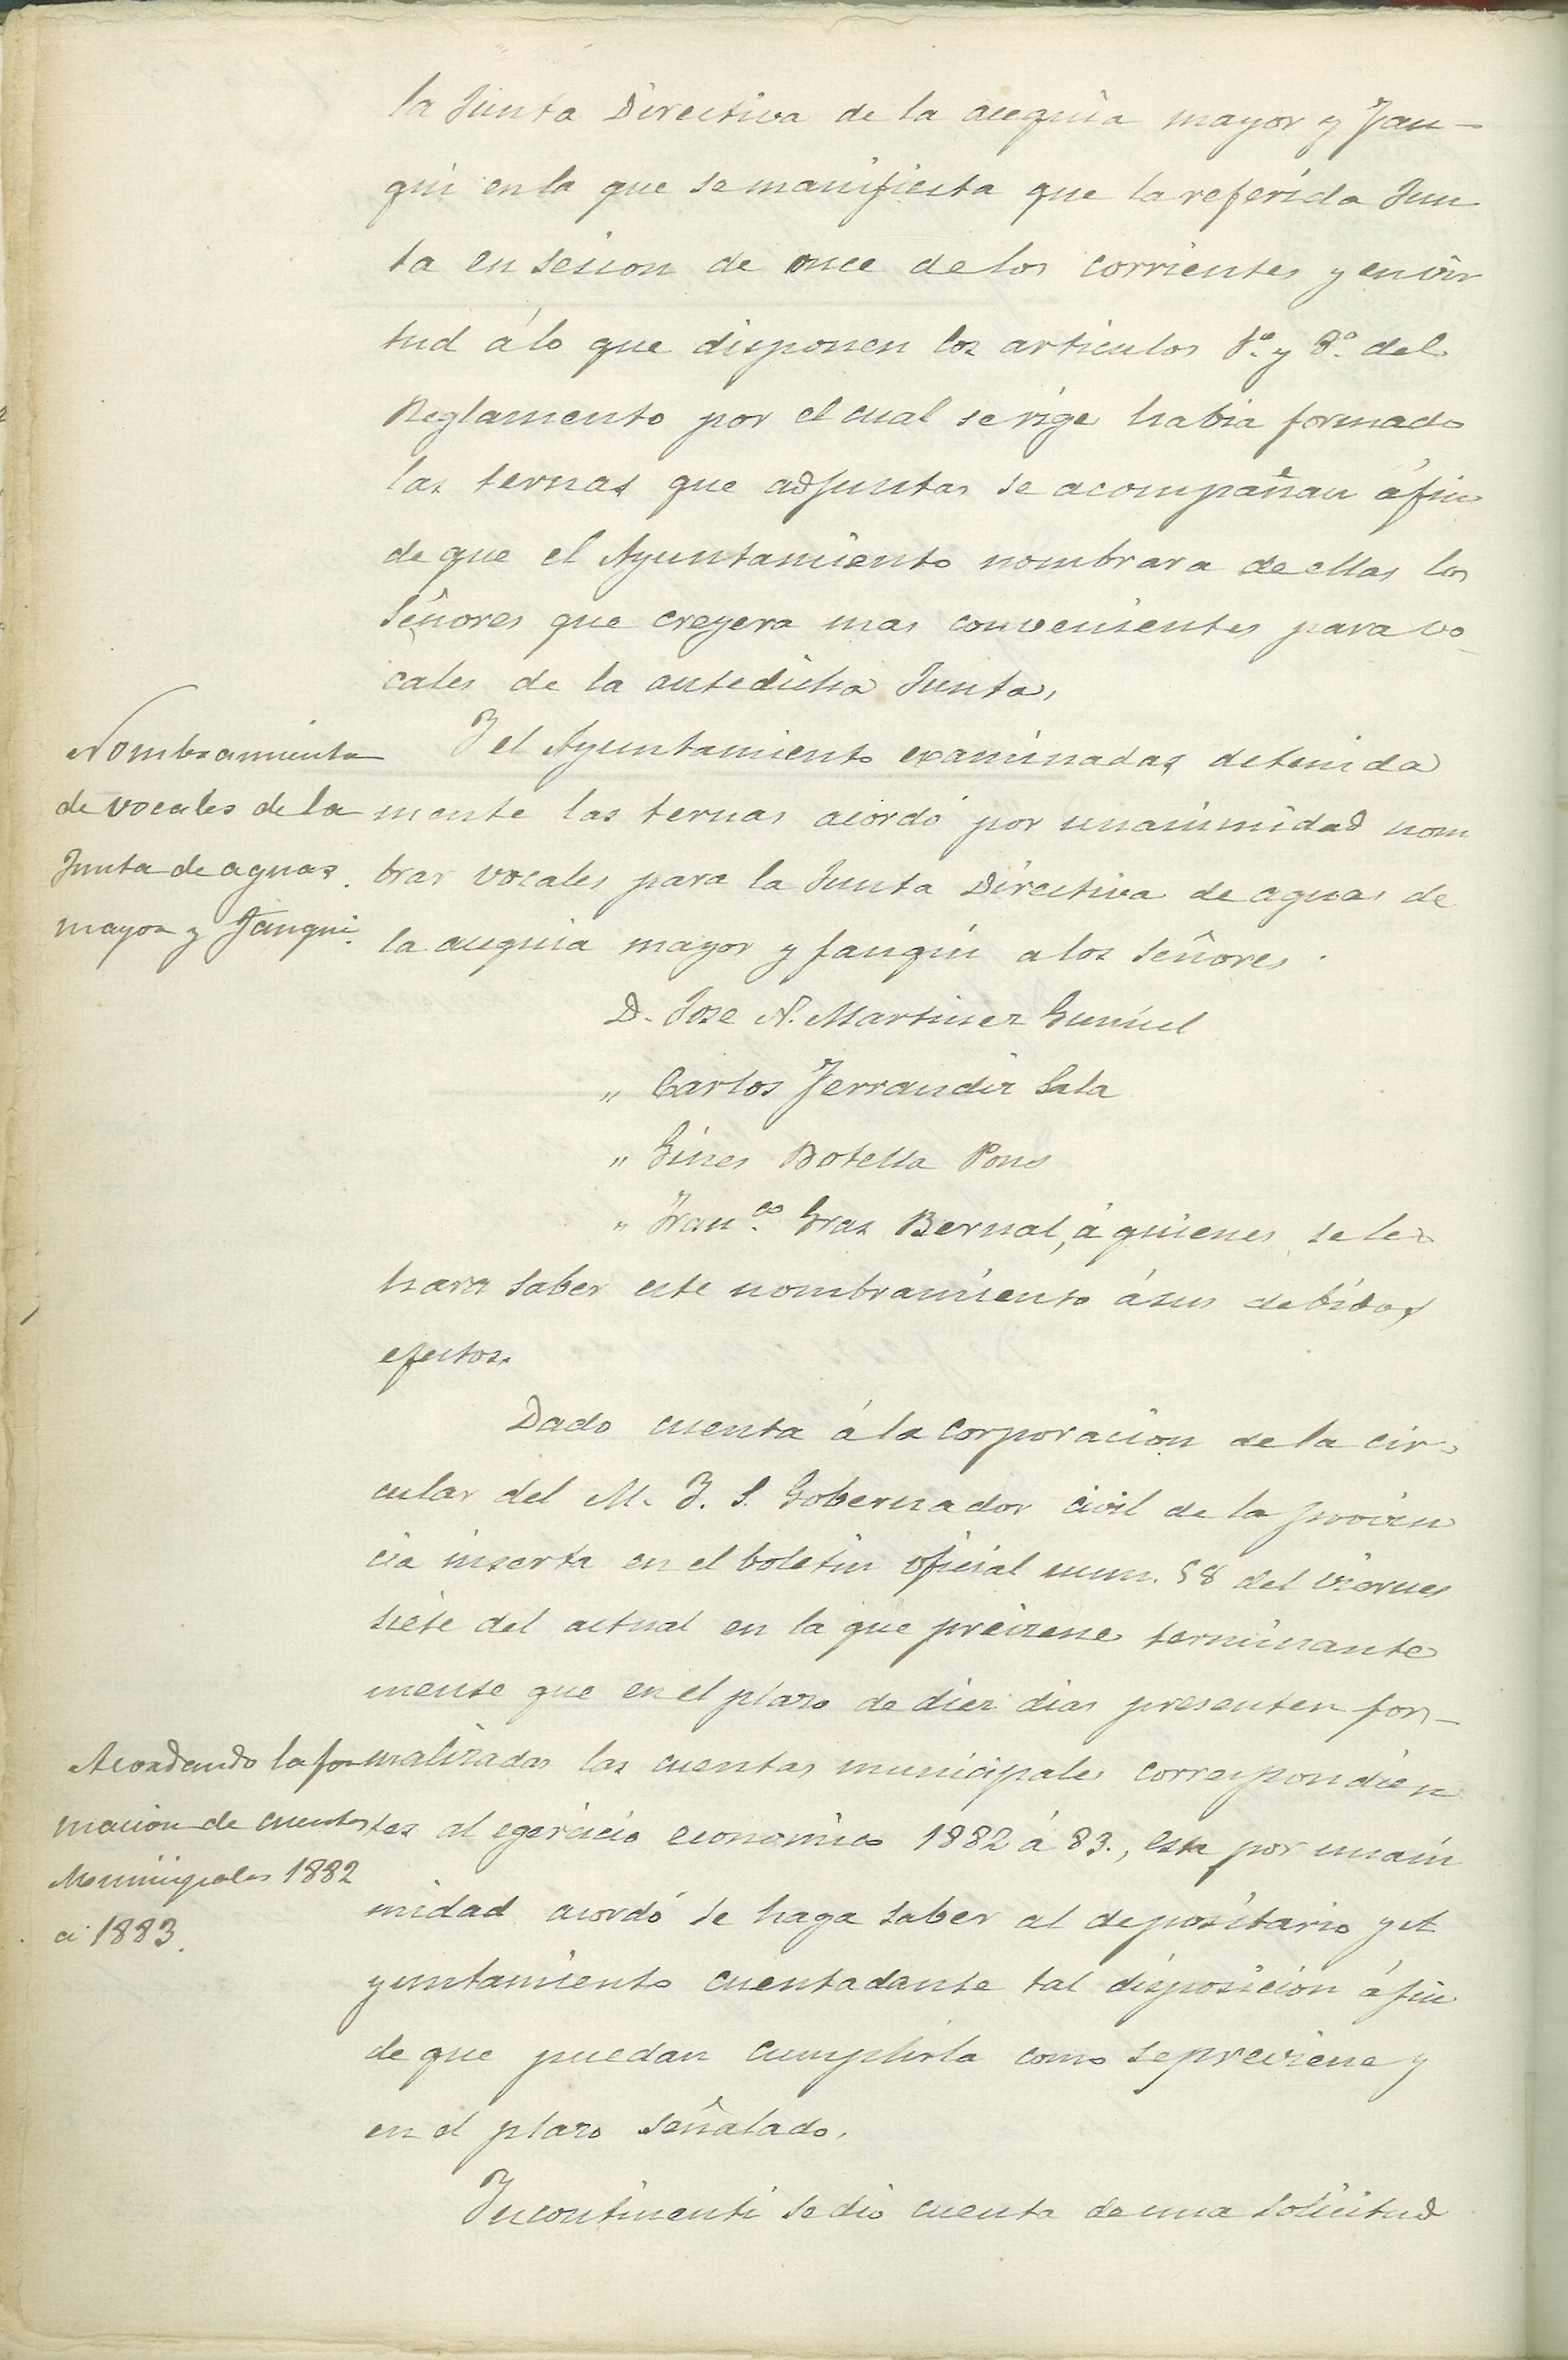 la Junta Directiva de la acequia mayor y Fau-
qui en la que se manifiesta que la referida Jun
ta en sesion de once de los corrientes y en vir
tud á lo que disponen los articulos y 3.º del
Reglamento por el cual se rige habia formado
las ternas que adjuntas se acompañan áfin
de que el Ayuntamiento nombrara de ellas los
Señores que creyera mas convenientes para vo-
cales de la antedicha Junta,
Nombramiento
de vocales de la
Junta de aguas
mayor y Fauqui.
Y el Ayuntamiento examinadas detenida
mente las ternas acordó por unanimidad nom
brar vocales para la Junta Directiva de aguas de
la acequia mayor y fauqui a los Señores.
D. Jose N. Martinez Gumiel
" Carlos Ferrandiz Sala
" Gines Botella Pons
" Fran.co Gras Bernal, á quienes se les
hara saber este nombramiento ásus debidos
efectos.
Dado cuenta á la Corporacion de la cir-
cular del M. Y. S. Gobernador civil de la provin
cia inserta en el boletin oficial num. 58 del viernes
siete del actual en la que previene terminante
mente que en el plazo de diez dias presenten for-
Acordando la for
macion de cuentas
Municipales 1882
á 1883.
malizadas las cuentas municipales correspondien
tes al egercicio economico 1882 á 83., esta por unani
midad acordó se haga saber al depositario y A
yuntamiento cuentadante tal disposicion áfin
de que puedan cumplirla como sepreviene y
en el plazo señalado.
Yncontinenti se dio cuenta de una solicitud